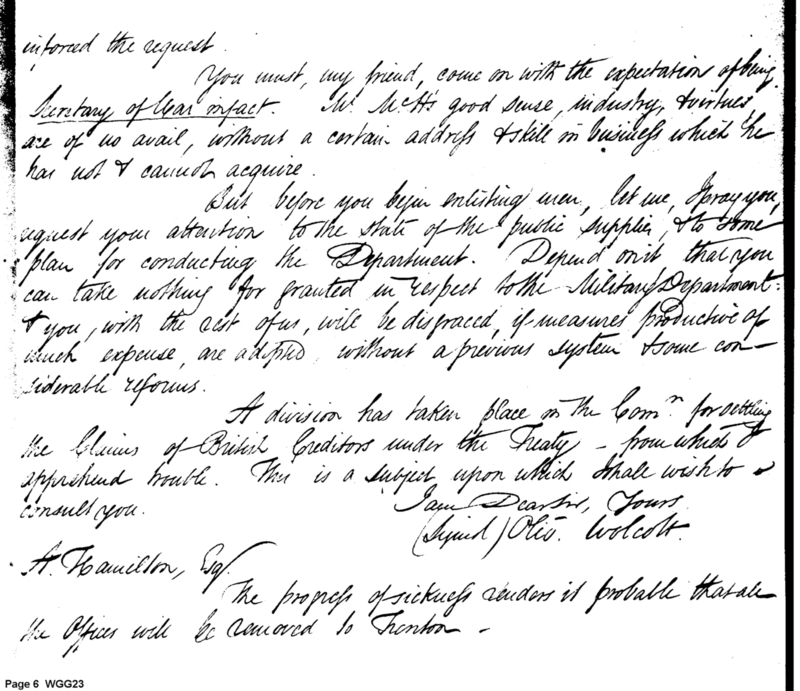 inforced the request.
You must, my friend, come on with the expectation of being
Secretary of War in fact. Mr. McH's good sense, industry & virtues,
are of no avail, without a certain address & skill in business which he
has not & cannot acquire.
But before you begin enlisting men, let me, I pray you,
request your attention to the state of the public supplies, & to some
plan for conducting the Department. Depend on it that you
can take nothing for granted in respect to the Military Department:
& you, with the rest of us, will be disgraced, if measures productive of
much expense, are adopted, without a previous system & some con-
siderable reforms.
A division has taken place in the Comn. for settling
the Claims of British Creditors under the Treaty - from which I
apprehend trouble. This is a subject upon which I shall wish to
consult you.
I am Dear Sir, Yours
(Signed) Oliv. Wolcott.
A. Hamilton, Esq.
The progress of sickness renders it probable that all
the Offices will be removed to Trenton -
Page 6 WGG23